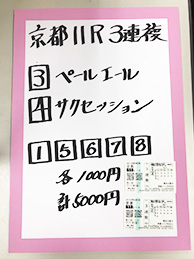 京都11R 3連複
3 ペールエール
4 サクセッション
1 5 6 7 8
各1000円
計5000円